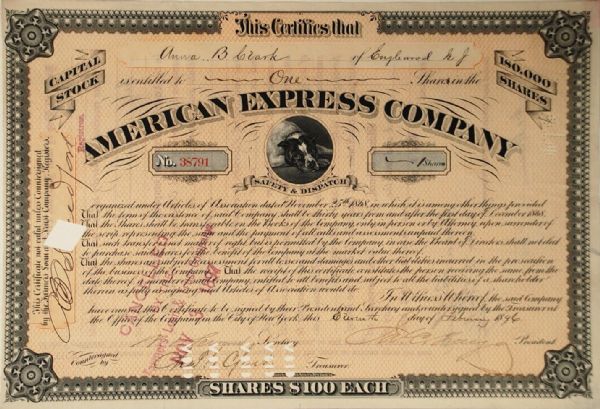 This Certifies that
Anna B Clark of Englewood N J
is entitled to One Shares in the
CAPITAL STOCK
180,000 SHARES
AMERICAN EXPRESS COMPANY
No. 38791
Shares
SAFETY & DISPATCH
organized under Articles of Association dated November 25th 1868, in which it is among other things provided
That the term of the existence of said Company shall be thirty years from and after the first day of December 1868.
That the Shares shall be transferable on the Books of the Company only in person or by Attorney upon surrender of
the scrip representing the same and the payment of all calls and assessments unpaid thereon.
That such transfer is not matter of right but is permitted by the Company in case the Board of Directors shall not elect
to purchase said shares for the benefit of the Company at the market value thereof.
That the shares are subject to assessment for all losses and damages and other liabilities incurred in the prosecution
of the business of the Company. That the receipt of this certificate constitutes the person receiving the same from the
date thereof a member of said Company, entitled to all benefits and subject to all the liabilities of a shareholder
therein as fully as signing said Articles of Association would do.
In Witness Whereof, the said Company
have caused this Certificate to be signed by their President and Secretary and countersigned by the Treasurer at
the Office of the Company in the City of New York, this Eleventh day of February 1896
Secretary
President
Countersigned by
Treasurer
SHARES $100 EACH
This Certificate not valid unless Countersigned
Registrar.
CANCELLED
NOV